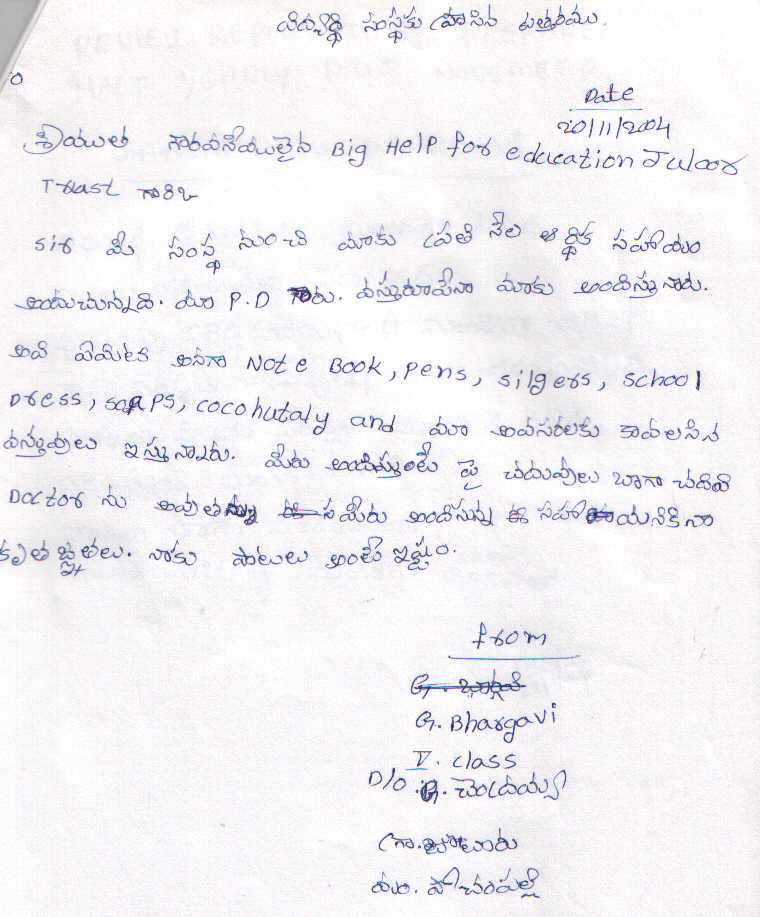 విద్యార్థి సంస్థకు వ్రాసిన ఉత్తరము.
Date
20/11/2004
శ్రీయుత గౌరవనీయులైన Big Help for education Juloor
Trust గారికి
sir మీ సంస్థ నుంచి మాకు ప్రతి నెల ఆర్థిక సహాయం
అందుచున్నది. మా P.D గారు. వస్తురూపేనా మాకు అందిస్తునారు.
అవి ఏమిటికి అనగా Note Book, pens, silgers, school
Dress, soaps, cocohutaly and మా అవసరలకు కావలసిన
వస్తువులు ఇస్తునారు. మీరు అందిస్తుంటే పై చదువులు బాగా చదివి
Doctor ను అవుత మీరు అందిసున్న సహాయనికి నా
కృతజ్ఞతలు. నాకు పాటలు అంటే ఇష్టం.
from
G. Bhargavi
V. class
D/o. G. చెంద్రయ్య
గ్రా. జూలూరు
మం. పోచంపల్లి